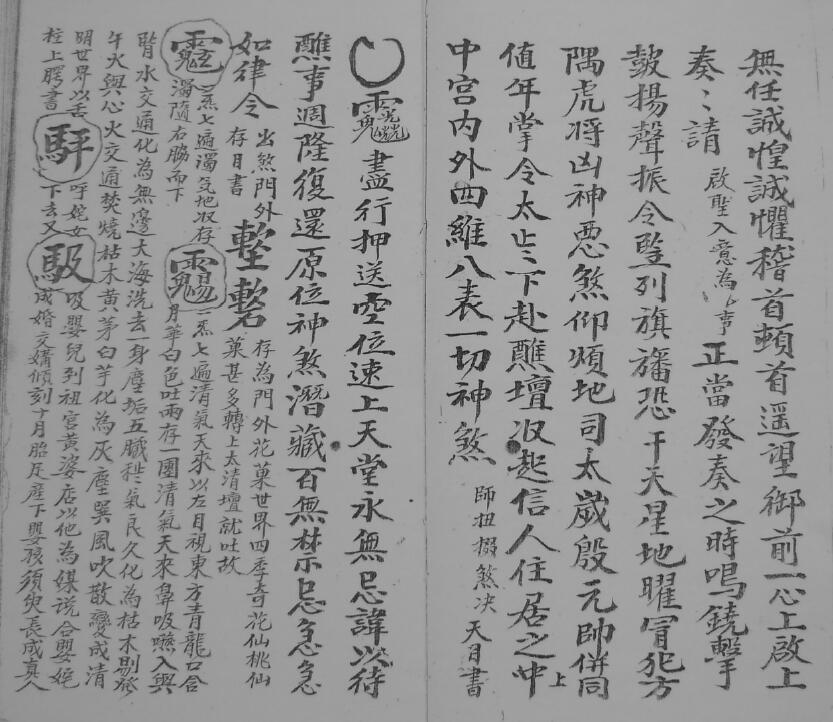 無任誠惶誠懼稽首頓首遥望御前一心上啟上
奏〻請啟聖入意為事正當發奏之時鳴鐃擊
皷揚聲振令竪列旗旛恐干天星地曜冒犯方
隅虎将凶神悪煞仰煩地司太歲殷元帥併同
值年掌令太歲下赴醮壇收起信人住居之中上
中宫内外四維八表一切神煞師扭掇煞决天目書
盡行押送空位速上天堂永無忌諱以待
醮事週隆復還原位神煞潛藏百無禁忌急急
如律令存目書出煞門外存為門外花菓世界四季奇花仙桃仙
菓甚多轉上太清壇就吐故
一炁七遍濁炁地収存濁隨右脇而下二炁七遍清氣天來以左目視東方青龍口合
月華白色吐兩存一團清氣天來鼻吸嚥入與
腎水交通化為無邊大海洗去一身塵垢五臟穢氣良久化為枯木剔發
午火與心火交通焚燒枯木黄茅白芋化為灰塵巽風吹散變成清
明世界以舌柱上腭書呼姹女下去又吸嬰兒到祖宫黄婆店以他為媒说合嬰姹
成婚交媾傾刻十月胎足產下嬰孩須臾長成真人